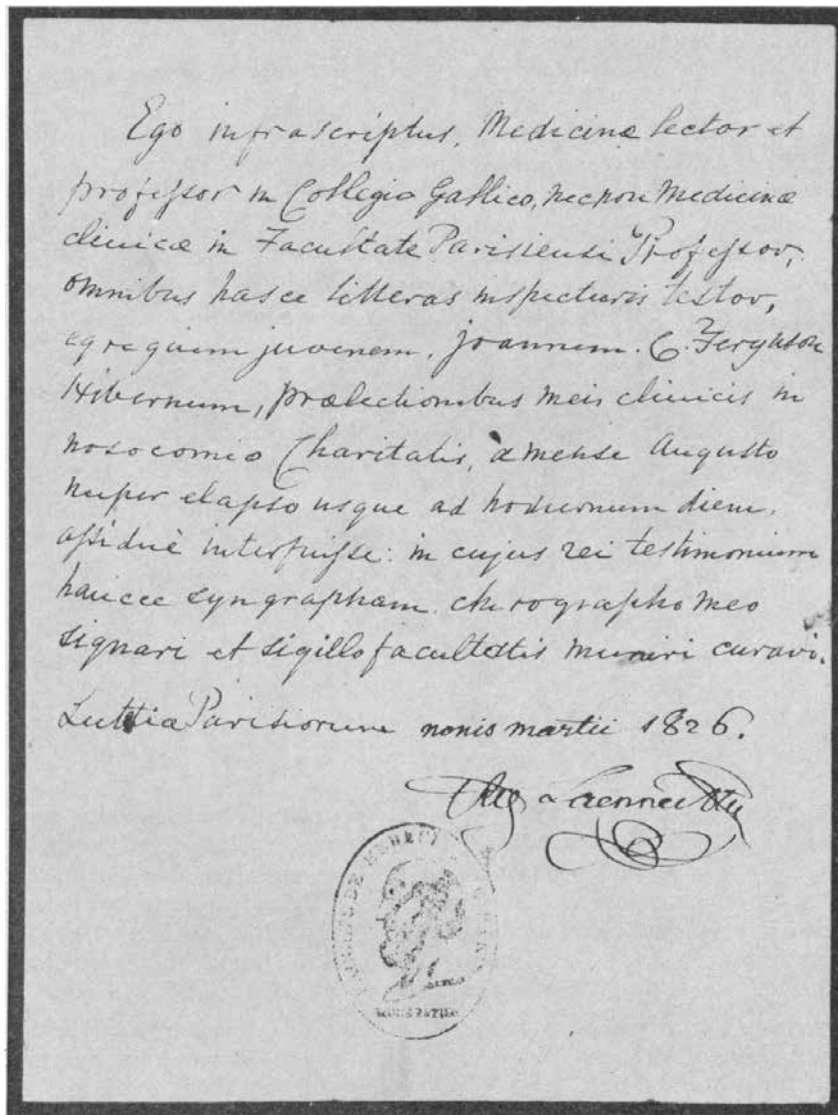 Ego infrascriptus, Medicinæ lector et
professor in Collegio Gallico, necnon Medicinæ
clinicæ in Facultate Parisiensi Professor,
omnibus hasce litteras inspecturis testor,
egregium juvenem, joannem. C. Ferguson
Hibernum, prælectionibus meis clinicis in
nosocomio Charitatis, à mense Augusto
nuper elapso usque ad hodiernum diem,
assiduè interfuisse: in cujus rei testimonium
hancce syngrapham chirographo meo
signari et sigillo facultatis muniri curavi.
Lutetia Parisiorum nonis martii 1826.
Laennec
DE MEDECI